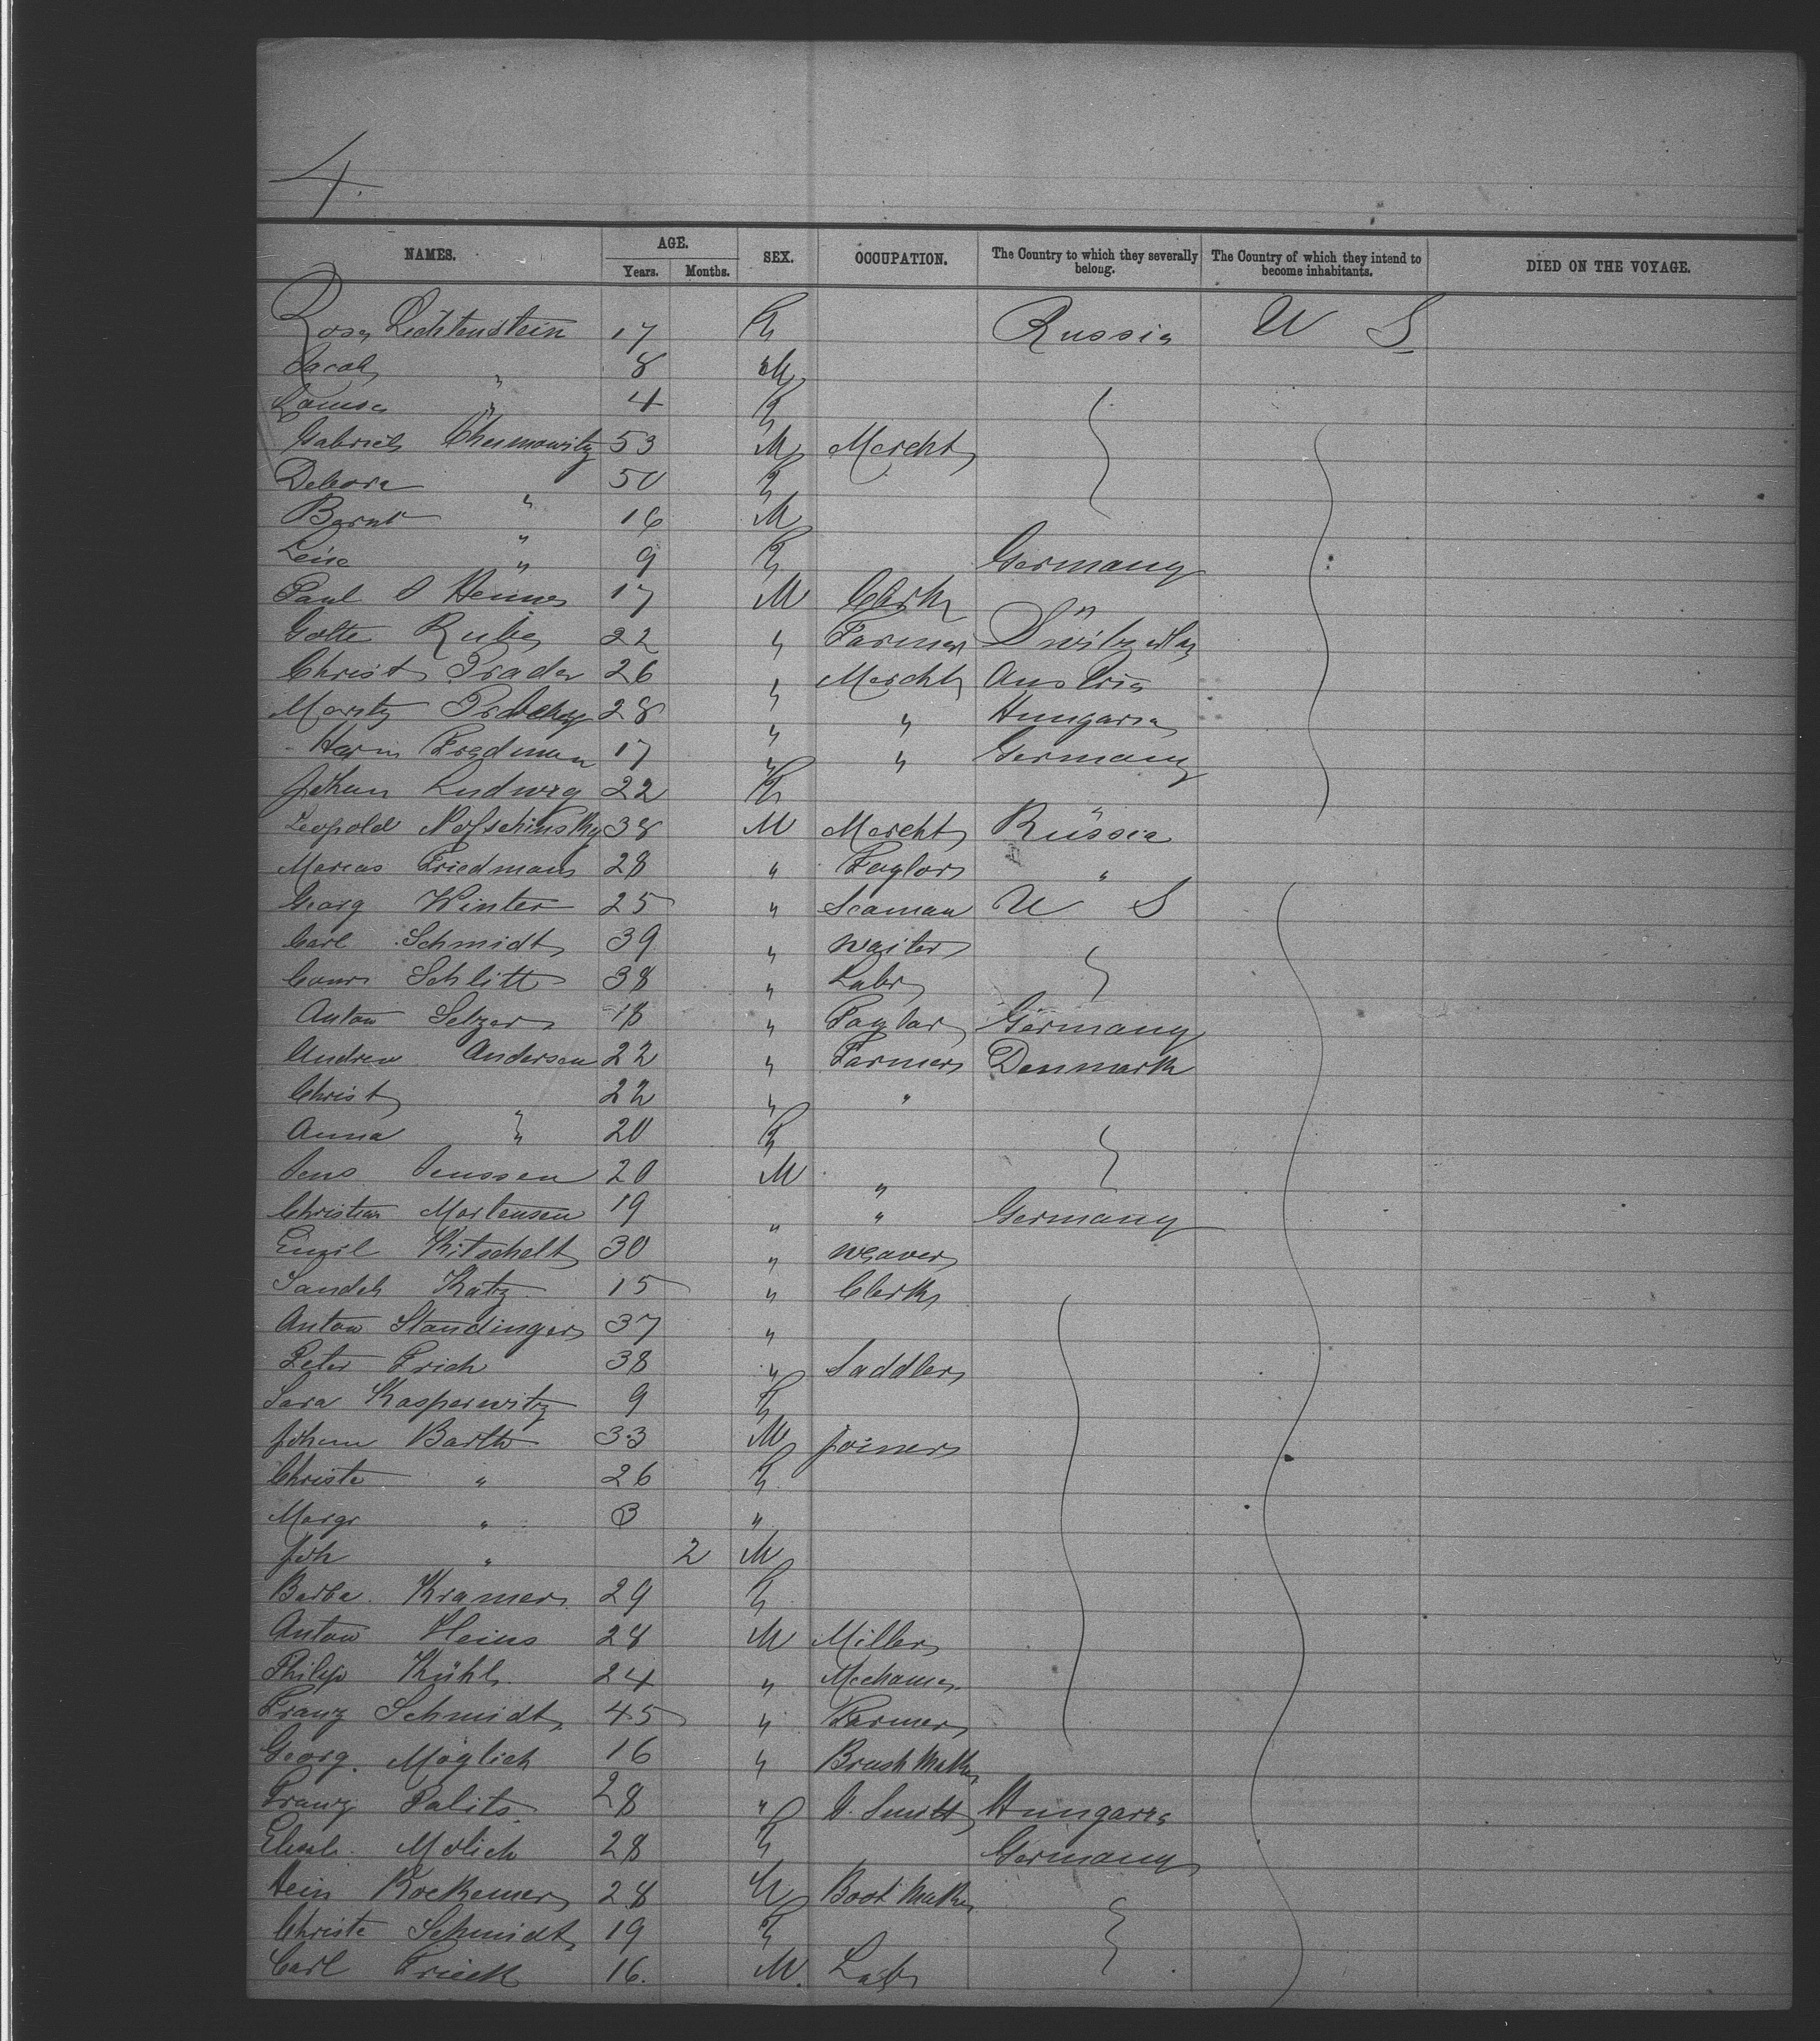 4.
NAMES. AGE. SEX. OCCUPATION. The Country to which they severally belong. The Country of which they intend to become inhabitants. DIED ON THE VOYAGE.
Years. Months.
Rosa Lichtenstein 17 F Russia U S
Jacob " 8 M
Louisa " 4 F
Gabriel 53 M Mercht
Debora " 50 F
Bernt " 16 M
Leise " 9 F Germany
Paul 17 M Clerk "
Rube 22 " Farmer
Christ Prader 26 " Mercht Austria
Moritz 28 " " Hungaria
Fredman 17 " " Germany
Johan Ludwig 22 F
Leopold 38 M Mercht Russia
Marcus Friedman 28 " Taylor "
Georg Winter 25 " Seaman U S
Carl Schmidt 39 " Waiter
Schlitt 38 " Labr
Anton Selzer 18 " Taylor Germany
Andrew Andersen 22 " Farmer Denmark
Christ " 22 " "
Anna " 20 F
Jens Jenssen 20 M "
Christian Mortensen 19 " " Germany
Emil Kitschelt 30 " Weaver
Sandel Katz 15 " Clerk
Anton Standinger 37 "
Peter Frich 38 " Saddler
Sara Kasperwitz 9 F
Johann Barth 33 M Joiner
Christe " 26 F
Margr " 3 "
Joh " 2 M
Barba Kramer 29 F
Anton Heins 28 M Miller
Philip Kühl 24 " Mechanic
Franz Schmidt 45 " Farmer
Georg Möglich 16 " Brush Maker
Franz Palits 28 " Smith Hungaria
Molich 28 F Germany
Hein 28 M Boot Maker
Christe Schmidt 19 F
Carl Frieck 16. M. Labr